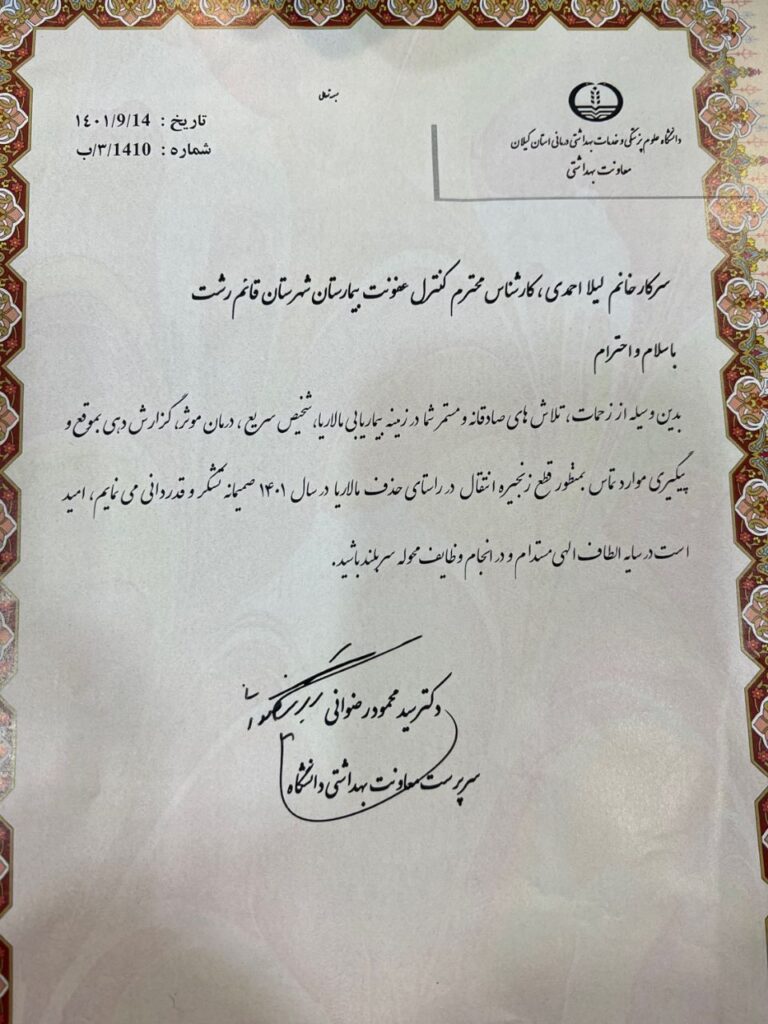 بسمه تعالی
دانشگاه علوم پزشکی و خدمات بهداشتی درمانی استان گیلان
معاونت بهداشتی
تاریخ : ۱٤۰۱/9/14
شماره : 1410/۳/ب
سرکار خانم لیلا احمدی ، کارشناس محترم کنترل عفونت بیمارستان شهرستان قائم رشت
با سلام و احترام
بدین وسیله از زحمات ، تلاش های صادقانه و مستمر شما در زمینه بیماریابی مالاریا، تشخیص سریع ، درمان موثر، گزارش دهی بموقع و
پیگیری موارد تماس بمنظور قطع زنجیره انتقال در راستای حذف مالاریا در سال ۱۴۰۱ صمیمانه تشکر و قدردانی می نمایم ، امید
است در سایه الطاف الهی مستدام و در انجام وظایف محوله سربلند باشید .
دکتر سید محمود رضوانی
سرپرست معاونت بهداشتی دانشگاه